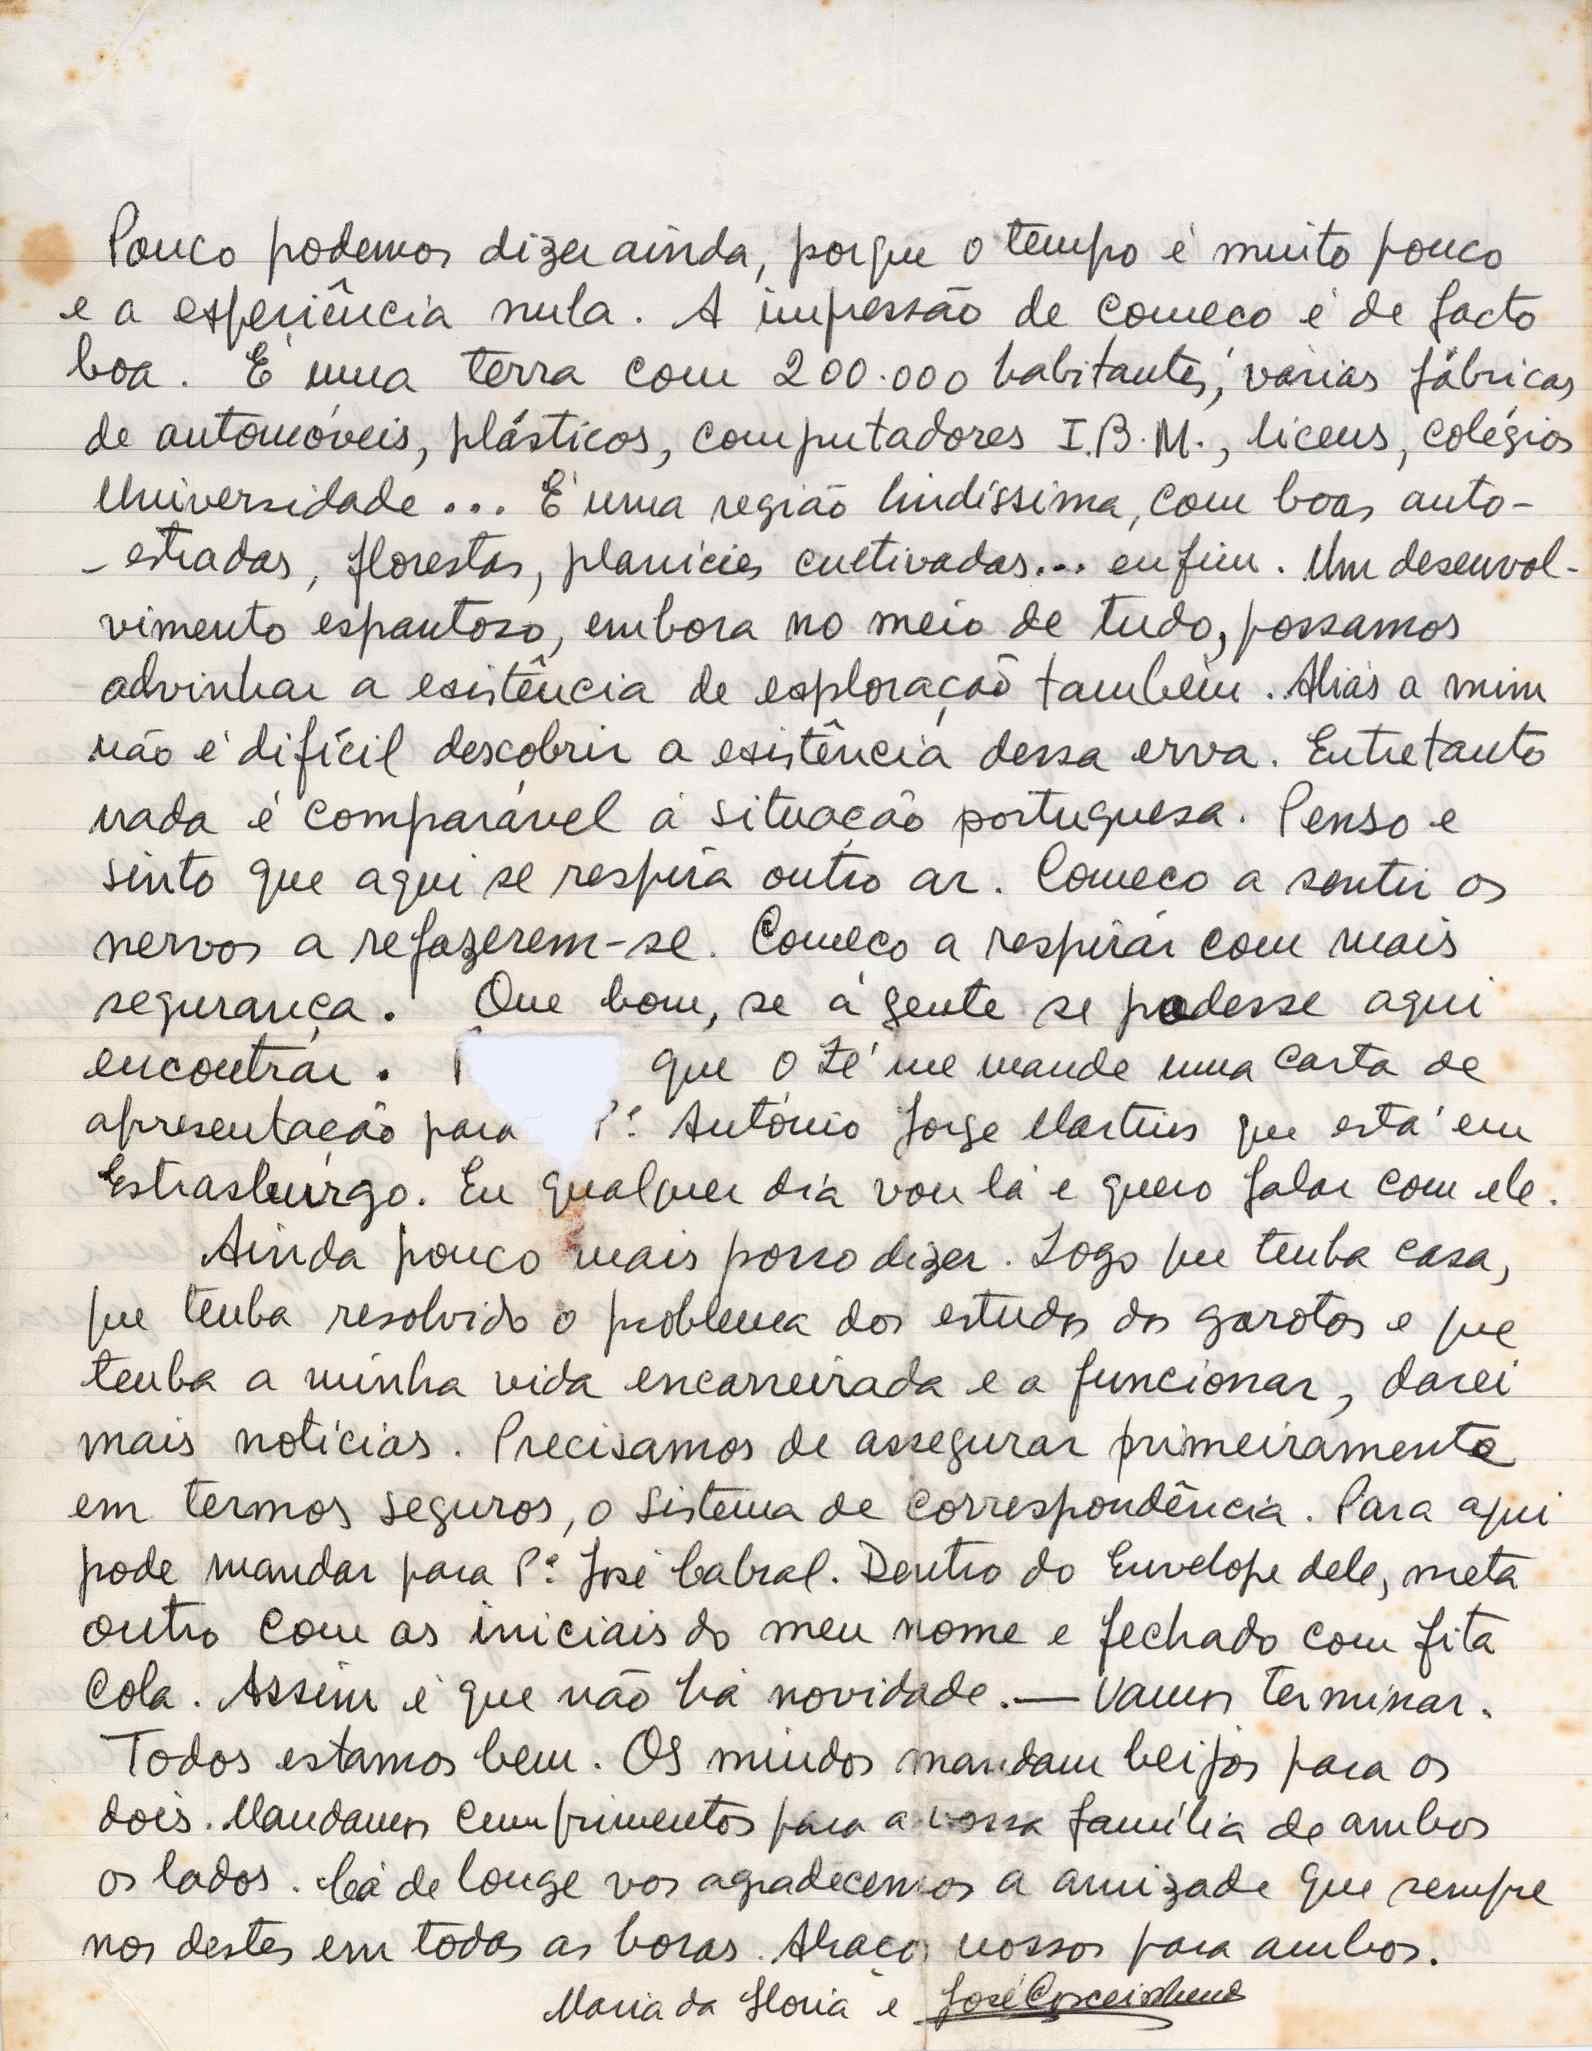 Pouco podemos dizer ainda, porque o tempo é muito pouco
e a experiência nula. A impressão de começo é de facto
boa. É uma terra com 200.000 habitantes, várias fábricas
de automóveis, plásticos, computadores I.B.M., liceus, colégios
Universidade ... É uma região lindíssima, com boas auto-
-estradas, florestas, planícies cultivadas... enfim. Um desenvol-
vimento espantoso, embora no meio de tudo, possamos
advinhar a existência de exploração também. Aliás a mim
não é difícil descobrir a existência dessa erva. Entretanto
nada é comparável á situação portuguesa. Penso e
sinto que aqui se respira outro ar. Começo a sentir os
nervos a refazerem-se. Começo a respirar com mais
segurança. Que bom, se a gente se podesse aqui
encontrar. que o Zé me mande uma carta de
apresentação para P.e António Jorge Martins que está em
Estrasburgo. Eu qualquer dia vou lá e quero falar com ele.
Ainda pouco mais posso dizer. Logo que tenha casa,
que tenha resolvido o problema dos estudos dos garotos e que
tenha a minha vida encarreirada e a funcionar, darei
mais notícias. Precisamos de assegurar primeiramente
em termos seguros, o sistema de correspondência. Para aqui
pode mandar para P.e José Cabral. Dentro do Envelope dele, meta
outro com as iniciais do meu nome e fechado com fita
Cola. Assim é que não há novidade.— Vamos terminar.
Todos estamos bem. Os miudos mandam beijos para os
dois. Mandamos cumprimentos para a vossa família de ambos
os lados. Cá de longe vos agradecemos a amizade que sempre
nos destes em todas as horas. Abraços nossos para ambos.
Maria da Glória e José